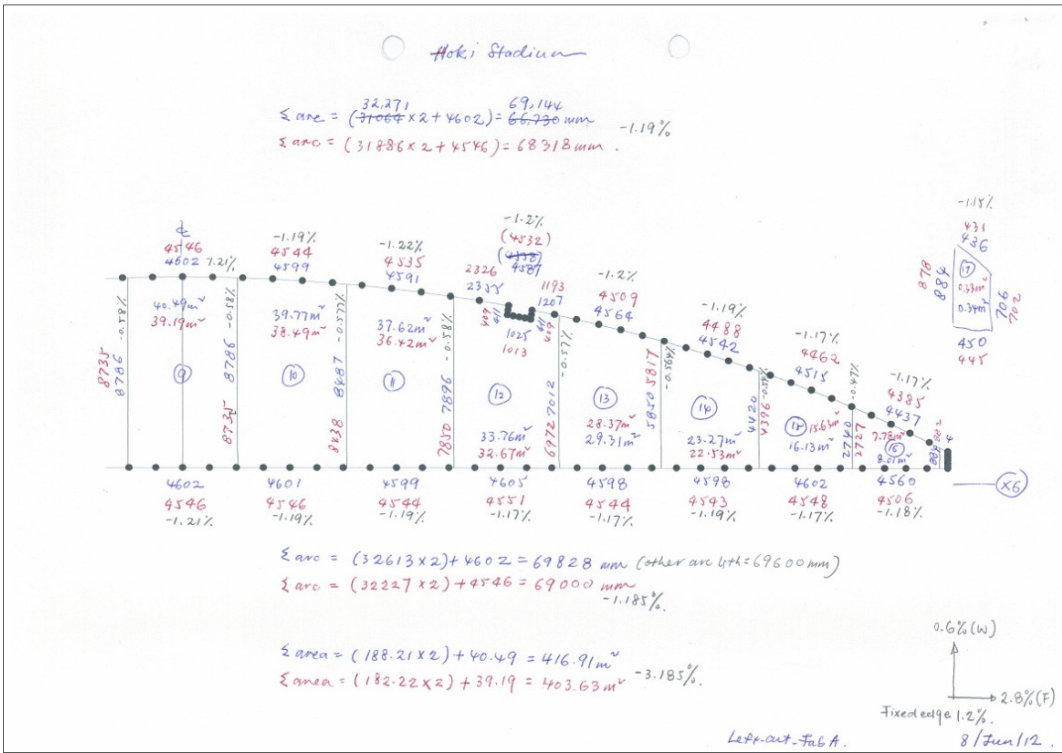 Hoki Stadium
32,271 69,144
Σ arc = (31064 x2 + 4602) = 66.730 mm -1.19%
Σ arc = (31886 x2 + 4546) = 68318 mm.
℄
4546
4602 7.21%
-1.19%
4544
4599
-1.22%
4535
4591
-1.2%
(4532)
4587
2326
2355
1193
1207
409
411
411
409
1025
1013
-1.2%
4509
4564
-1.19%
4488
4542
-1.17%
4462
4515
-1.17%
4385
4437
-1.18%
431
436
878
884
17
0.33m²
0.34m²
706
702
450
445
8735
8786 -0.58%
40.49m²
39.19m²
9
8735
8786 -0.58%
39.77m²
38.49m²
10
8438
8487 -0.57%
37.62m²
36.42m²
11
7850 7896 -0.58%
12
33.76m²
32.67m²
6972 7012 -0.57%
13
28.37m²
29.31m²
5850 5817 -0.56%
14
23.27m²
22.53m²
4420
4396
15.63m²
16.13m²
2740 -0.47%
2727
7.78m²
16
8.01m²
884
4602
4546
-1.21%
4601
4546
-1.19%
4599
4544
-1.19%
4605
4551
-1.17%
4598
4544
-1.17%
4598
4543
-1.19%
4602
4548
-1.17%
4560
4506
-1.18%
X6
Σ arc = (32613 x2) + 4602 = 69828 mm (other arc lgth = 69600 mm)
Σ arc = (32227 x2) + 4546 = 69000 mm
-1.185%.
Σ area = (188.21 x2) + 40.49 = 416.91 m²
Σ area = (182.22 x2) + 39.19 = 403.63 m² -3.185%.
0.6% (W)
2.8% (F)
Fixed edge 1.2%.
Left-cut-Fab A.
8/Jun/12